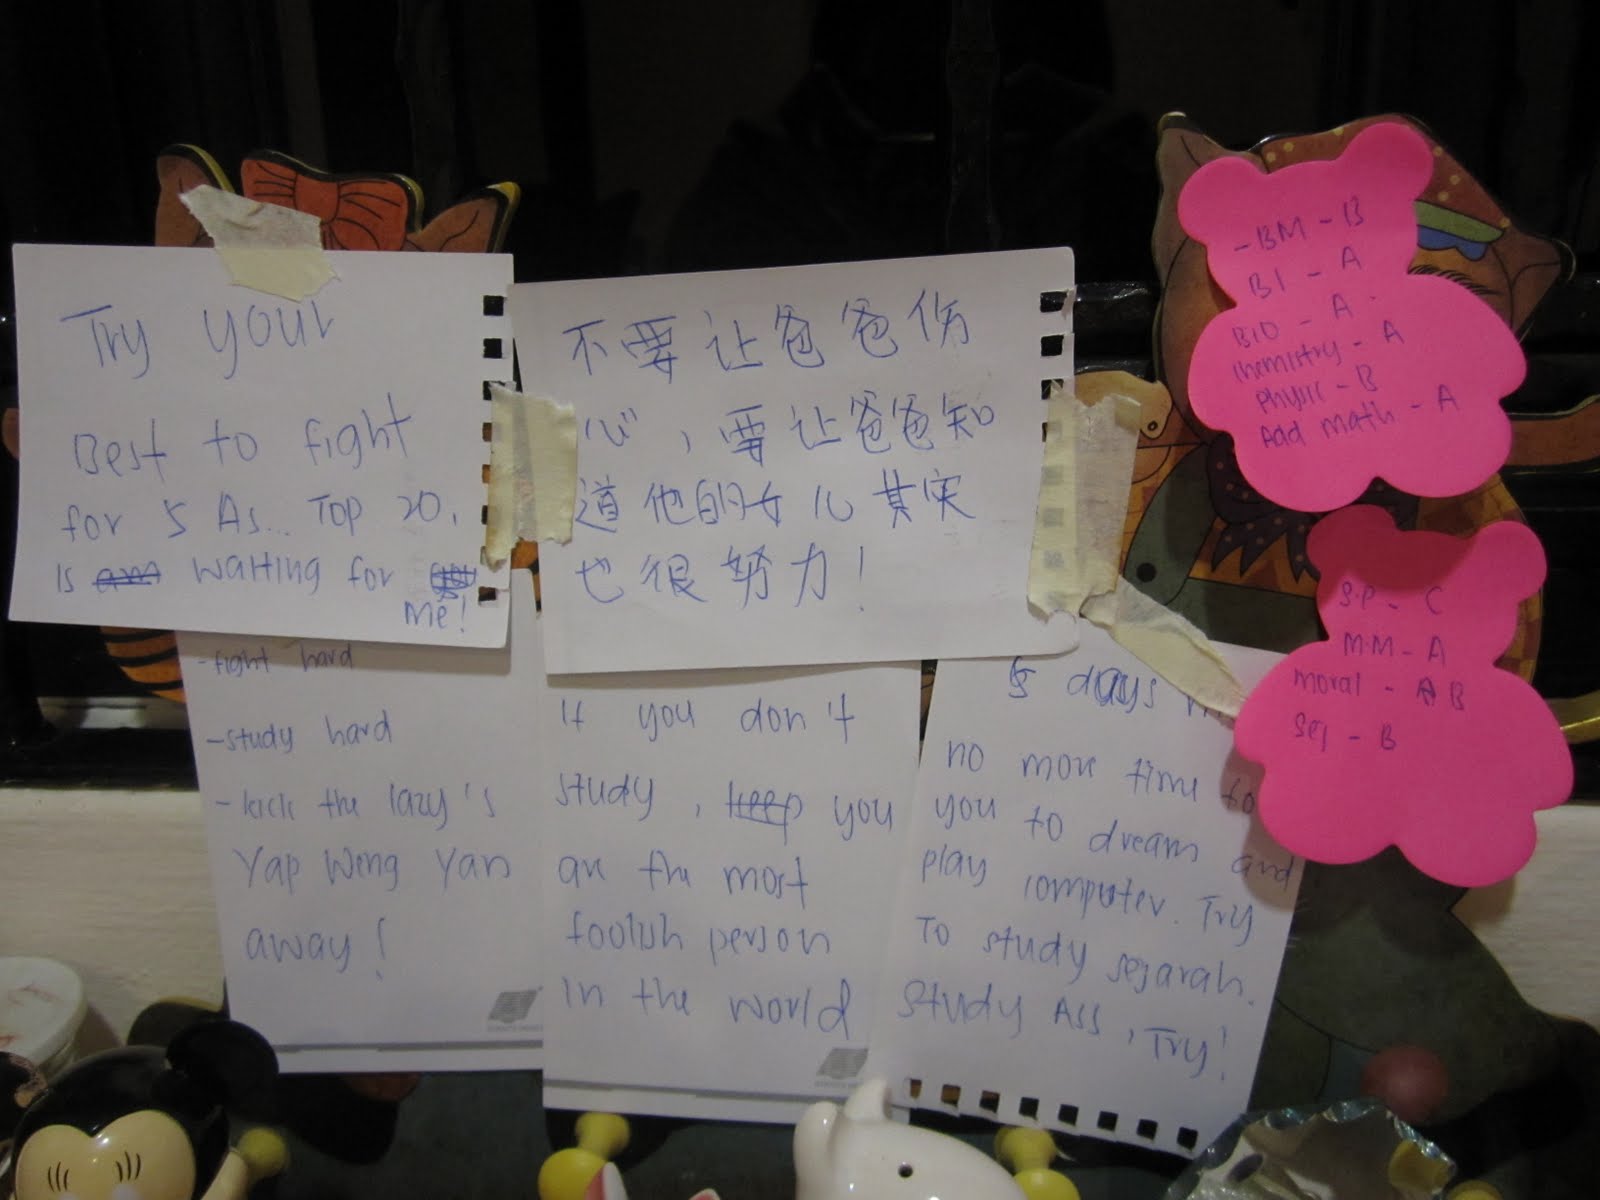 Try your
Best to fight
for 5 As... Top 20,
is am waiting for
me!
不要让爸爸伤
心，要让爸爸知
道他的女儿其实
也很努力！
- BM - B
BI - A
BIO - A
chemistry - A
physic - B
Add math - A
S.P - C
M.M - A
moral - A B
sej - B
- fight hard
- study hard
- kick the lazy's
Yap Weng Yan
away!
If you don't
study, keep you
are the most
foolish person
in the world
5 days
no more time to
you to dream and
play computer. Try
To study sejarah.
Study Ass, Try!